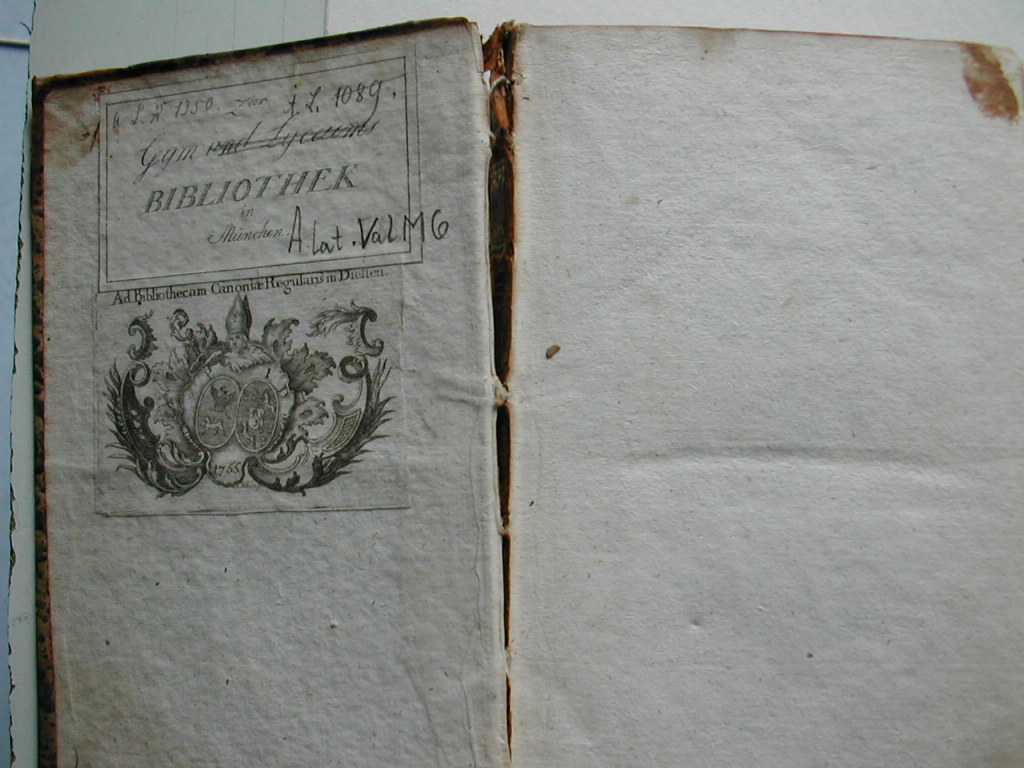 1350. zur A. L. 1089.
Gym und Lyceums
BIBLIOTHEK
in
München.
A lat. Val M 6
Ad Bibliothecam Canoniæ Regularis in Diessen.
1755